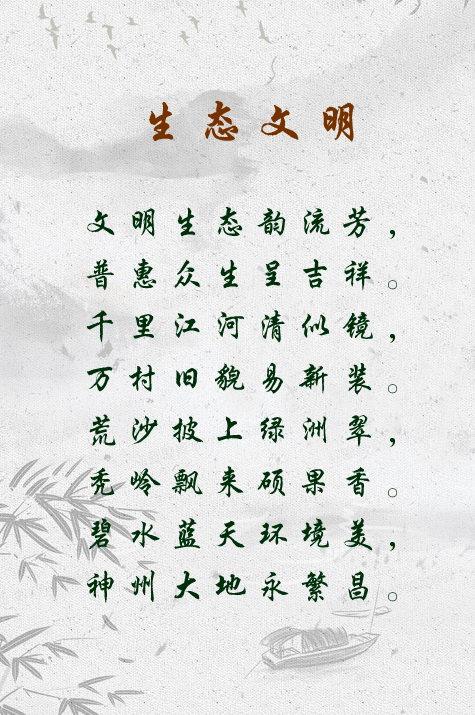 生态文明
文明生态韵流芳，
普惠众生呈吉祥。
千里江河清似镜，
万村旧貌易新装。
荒沙披上绿洲翠，
秃岭飘来硕果香。
碧水蓝天环境美，
神州大地永繁昌。